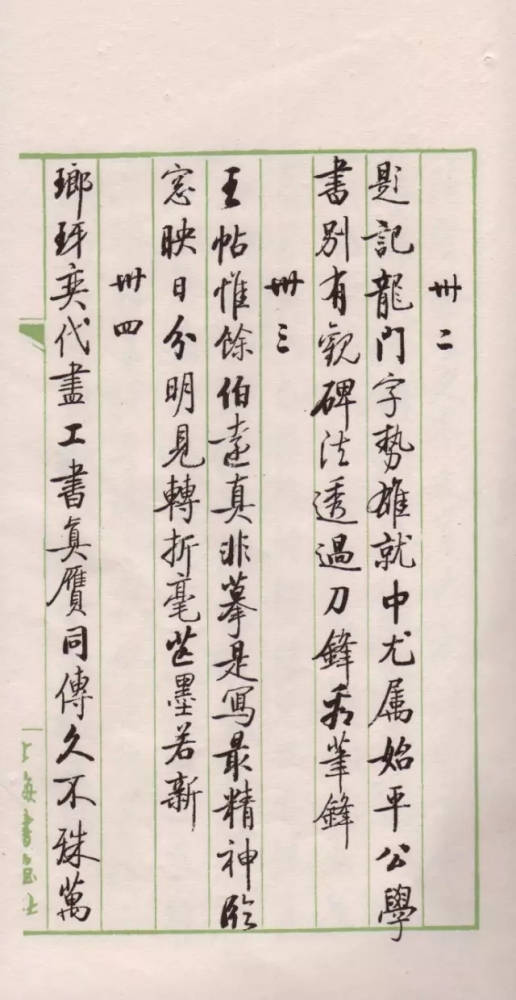 卅二
題記龍門字勢雄就中尤属始平公學
書别有觀碑法透過刀鋒看筆鋒
卅三
王帖惟餘伯遠真非摹是寫最精神臨
窓映日分明見轉折毫芒墨若新
卅四
瑯琊奕代盡工書真贋同傳久不殊萬
上海書画社